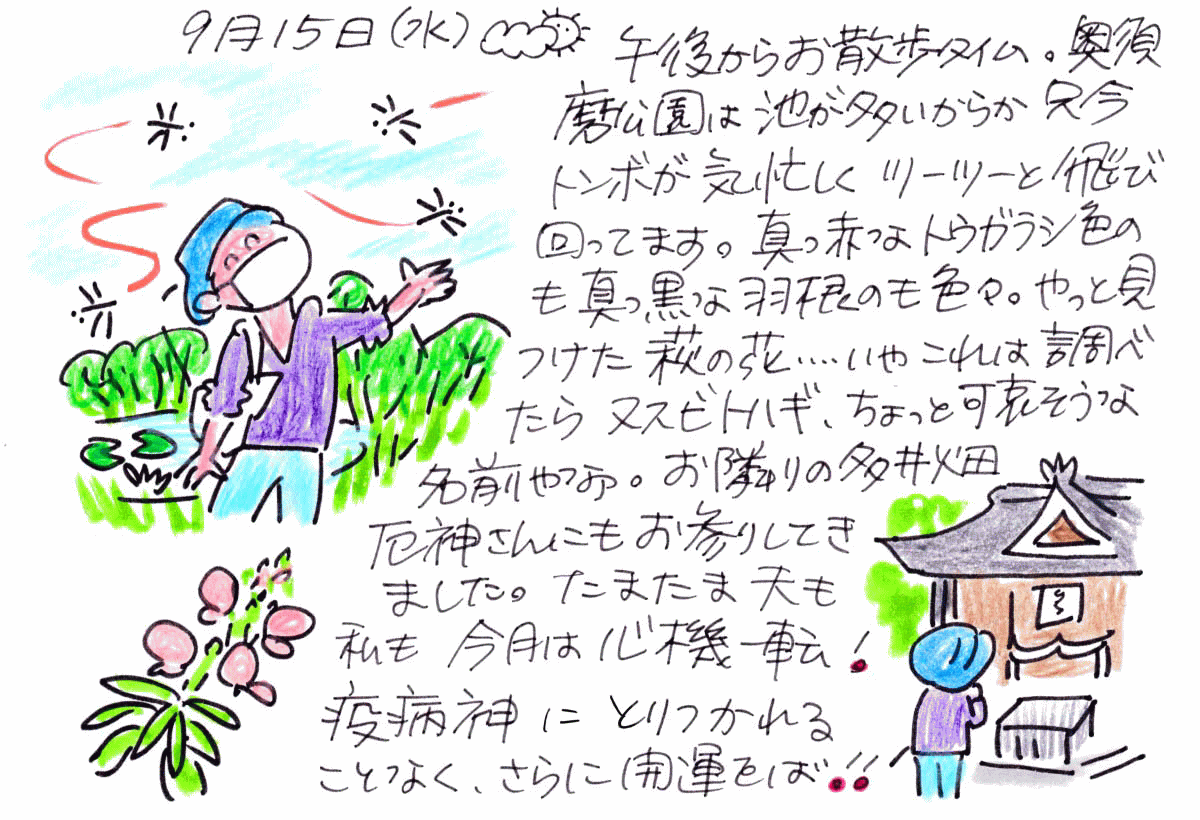 9月15日(水)
午後からお散歩タイム。奥須
磨公園は池が多いからか只今
トンボが気忙しくツーツーと飛び
回ってます。真っ赤なトウガラシ色の
も真っ黒な羽根のも色々。やっと見
つけた萩の花‥‥いやこれは調べ
たらヌスビトハギ、ちょっと可哀そうな
名前やなぁ。お隣りの多井畑
厄神さんにもお参りしてき
ました。たまたま夫も
私も今月は心機一転!
疫病神にとりつかれる
ことなく、さらに開運をば!!